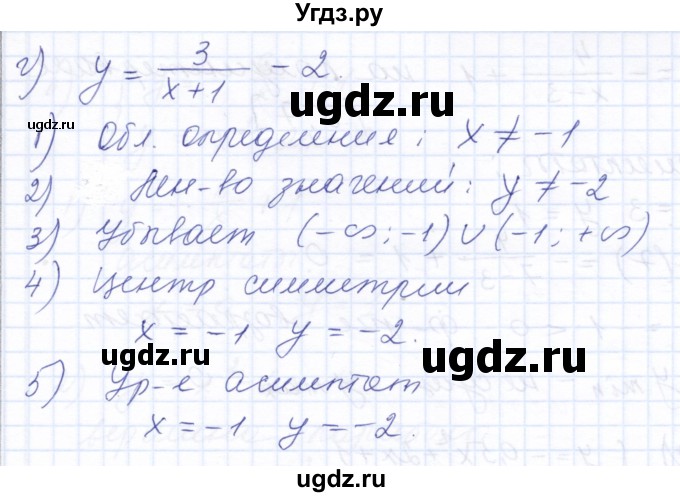 Угдз.ру
г) y = 3/(x+1) - 2.
ugdz.ru ugdz.ru
1) Обл. определения: x ≠ -1
2) Мн-во значений: y ≠ -2
3) Убывает (-∞; -1) ∪ (-1; +∞)
4) Центр симметрии
x = -1 y = -2.
ugdz.ru ugdz.ru
5) Ур-е асимптот
x = -1 y = -2.
ugdz.ru ugdz.ru
ugdz.ru